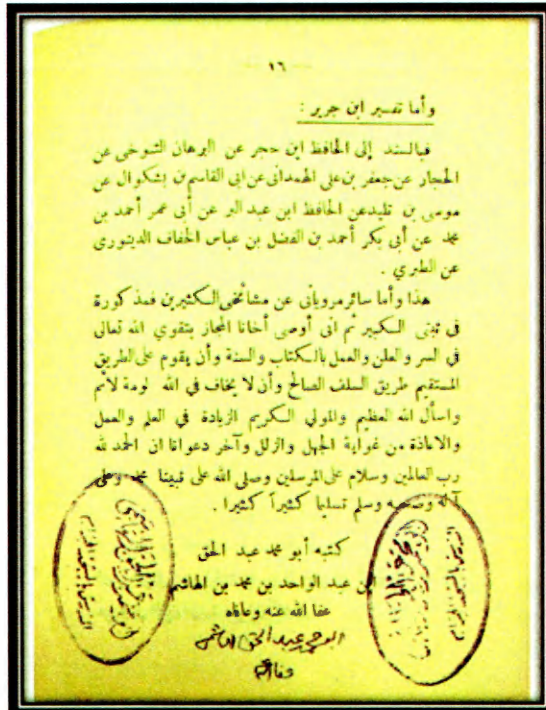 — ١٦ —
وأما تفسير ابن جرير :
فبالسند إلى الحافظ ابن حجر عن البرهان التنوخي عن
الحجار عن جعفر بن علي الهمداني عن ابي القاسم بن بشكوال عن
موسى بن تليد عن الحافظ ابن عبد البر عن أبي عمر أحمد بن
محمد عن أبي بكر أحمد بن الفضل بن عباس الخفاف الدينوري
عن الطبري .
هذا وأما سائر مروياتي عن مشائخي الكثيرين فمذكورة
في ثبتي الكبير ثم اني أوصي أخانا المجاز بتقوي الله تعالى
في السر والعلن والعمل بالكتاب والسنة وأن يقوم على الطريق
المستقيم طريق السلف الصالح وأن لا يخاف في الله لومة لائم
واسأل الله العظيم والمولي الكريم الزيادة في العلم والعمل
والاعاذة من غواية الجهل والزلل وآخر دعوانا ان الحمد لله
رب العالمين وسلام على المرسلين وصلى الله على نبينا محمد وعلى
آله وصحبه وسلم تسليما كثيراً كثيرا .
كتبه أبو محمد عبد الحق
ابن عبد الواحد بن محمد بن الهاشم
عفا الله عنه وعافاه
ابو محمد عبد الحق الهاشمي
المدرس بالمسجد الحرام
المدرس بالمسجد الحرام